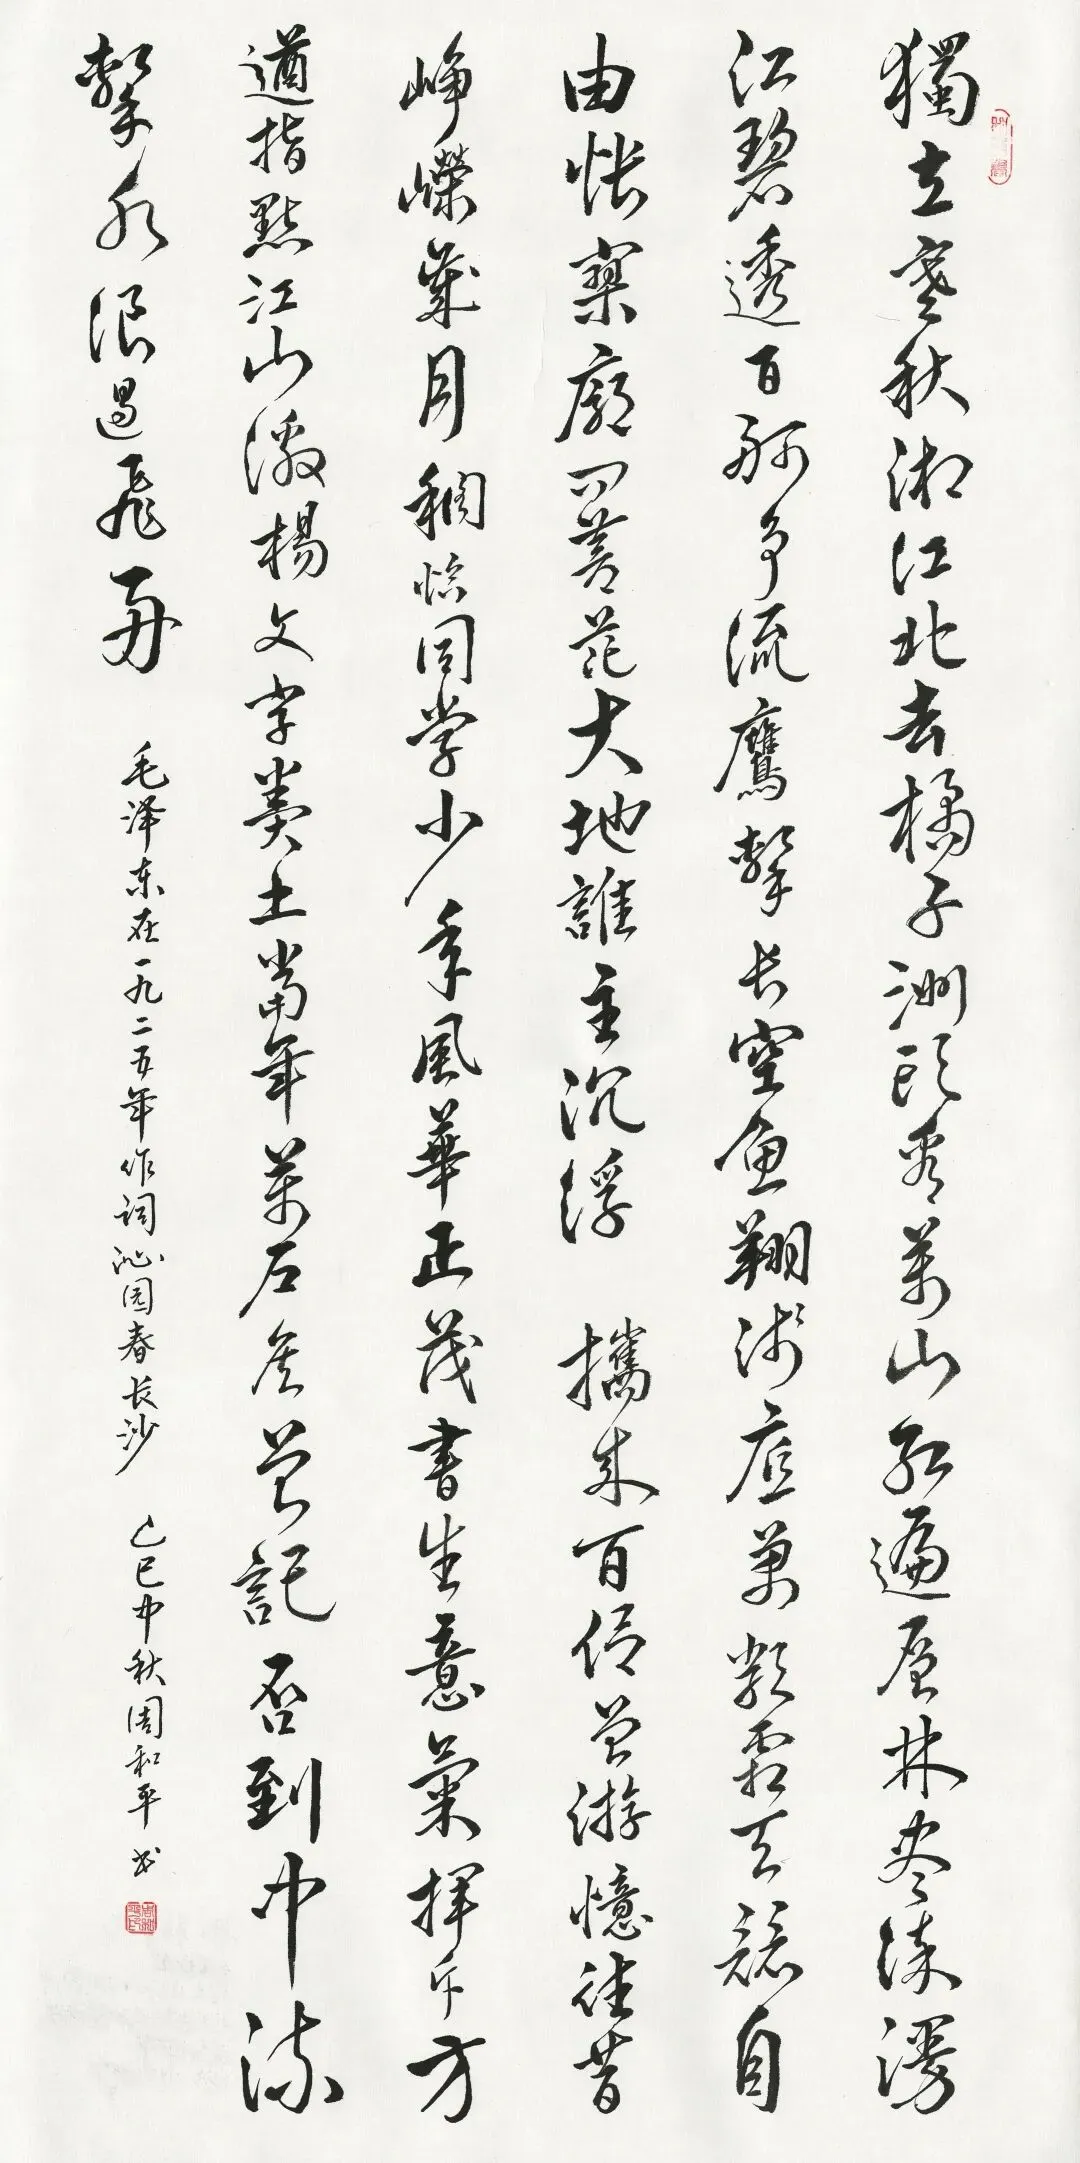 獨立寒秋湘江北去橘子洲头看萬山红遍层林尽染漫
江碧透百舸争流鷹擊长空鱼翔浅底萬類霜天競自
由怅寥廓问蒼茫大地誰主沉浮 攜来百侣曾游憶往昔
峥嶸歲月稠恰同学少年風華正茂書生意氣揮斥方
遒指點江山激揚文字糞土當年萬户侯曾記否到中流
擊水浪遏飛舟
毛泽东在一九二五年作词沁园春长沙 乙巳中秋周和平书